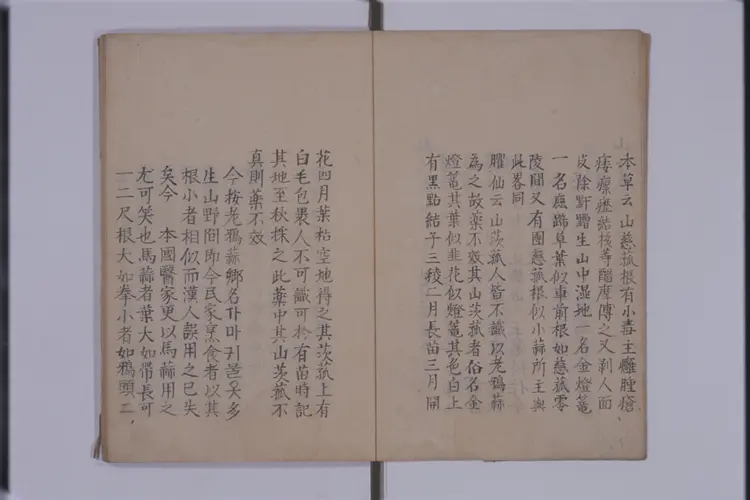 本草云山慈菰根有小毒主癰腫瘡
瘻瘰癧結核等醋摩傅之又剥人面
皮除䵟䵳生山中濕地一名金燈籠
一名鹿蹄草葉似車前根如慈菰零
陵間又有團慈菰根似小蒜所主與
此畧同
臞仙云山茨菰人皆不識以老鴉蒜
為之故藥不效其山茨菰者俗名金
燈籠其葉似韭花似燈籠其色白上
有黑點結子三稜二月長苗三月開
花四月葉枯空地得之其茨菰上有
白毛包裹人不可識可於有苗時記
其地至秋採之此藥中其山茨菰不
真則藥不效
今按老鴉蒜鄉名가마귀물웃多
生山野間即今民家烹食者以其
根小者相似而漢人誤用之已失
矣今 本國醫家更以馬蒜用之
尤可笑也馬蒜者葉大如帶長可
一二尺根大如拳小者如鴉頭二